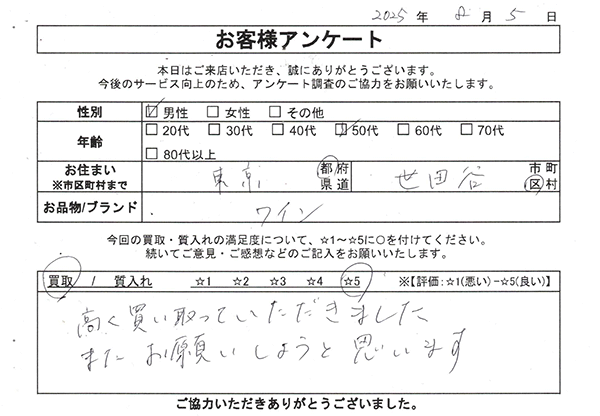 2025年 8月 5日
お客様アンケート
本日はご来店いただき、誠にありがとうございます。
今後のサービス向上のため、アンケート調査のご協力をお願いいたします。
性別 ☑男性 □女性 □その他
年齢 □20代 □30代 □40代 ☑50代 □60代 □70代
□80代以上
お住まい
※市区町村まで 東京 都府県道 世田谷 市町区村
お品物/ブランド ワイン
今回の買取・質入れの満足度について、☆1~☆5に○を付けてください。
続いてご意見・ご感想などのご記入をお願いいたします。
買取 / 質入れ ☆1 ☆2 ☆3 ☆4 ☆5 ※【評価:☆1(悪い)-☆5(良い)】
高く買い取っていただきました
またお願いしようと思います
ご協力いただきありがとうございました。